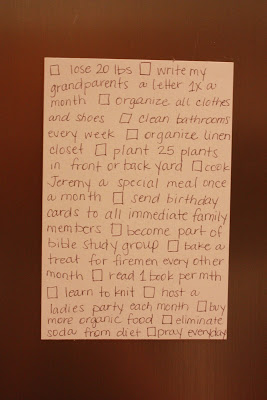 ☐ lose 20 lbs ☐ write my
grandparents a letter 1x a
month ☐ organize all clothes
and shoes ☐ clean bathrooms
every week ☐ organize linen
closet ☐ plant 25 plants
in front or back yard ☐ cook
Jeremy a special meal once
a month ☐ send birthday
cards to all immediate family
members ☐ become part of
bible study group ☐ bake a
treat for firemen every other
month ☐ read 1 book per mth
☐ learn to knit ☐ host a
ladies party each month ☐ buy
more organic food ☐ eliminate
soda from diet ☐ pray everyday